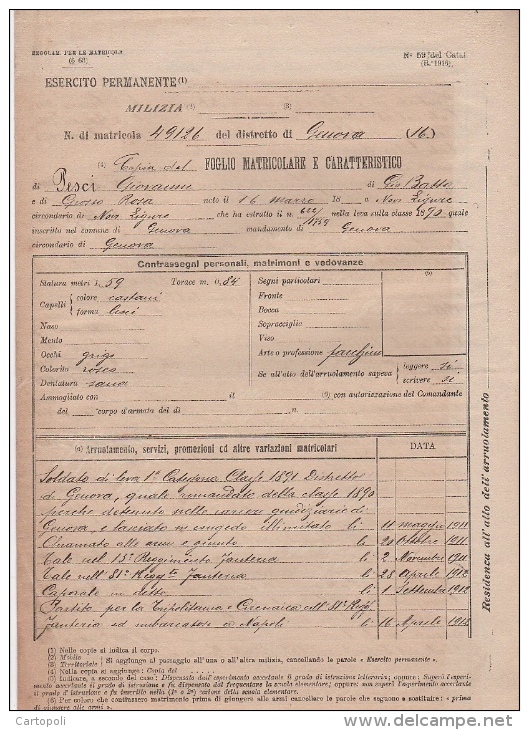 REGOLAM. PER LE MATRICOLE
(§ 68)
N° 59 del Catal.
(R. 1916)
ESERCITO PERMANENTE (1)
MILIZIA (2) (3)
N. di matricola 49126 del distretto di Genova (16)
(4) Copia del FOGLIO MATRICOLARE E CARATTERISTICO
di Pesci Giovanni di Gio Batta
e di Grosso Rosa nato il 16 marzo 18 a Novi Ligure
circondario di Novi Ligure che ha estratto il n. nella leva sulla classe 1890 quale
inscritto nel comune di Genova mandamento di Genova
circondario di Genova
Contrassegni personali, matrimoni e vedovanze
Statura metri 1,59 Torace m. 0,84
Capelli colore castani
forma lisci
Naso
Mento
Occhi grigi
Colorito rosea
Dentatura sana
Segni particolari
Fronte
Bocca
Sopracciglia
Viso
Arte o professione facchino
Se all'atto dell'arruolamento sapeva leggere si
scrivere si
(5)
Ammogliato con il con autorizzazione del Comandante
del corpo d'armata del dì n.
Arruolamento, servizi, promozioni ed altre variazioni matricolari DATA
Soldato di leva 1ª Categoria Classe 1891 Distretto
di Genova, quale rimandato della classe 1890
perchè detenuto nelle carceri giudiziarie di
Genova e lasciato in congedo illimitato li 11 maggio 1911
Chiamato alle armi e giunto li 20 Ottobre 1911
Tale nel 15º Reggimento Fanteria li 2 Novembre 1911
Tale nell'81º Reggto Fanteria li 28 Aprile 1912
Caporale in detto li 1 Settembre 1912
Partito per la Tripolitania e Cirenaica coll'81º Regg.
Fanteria ed imbarcatosi a Napoli li 16 Aprile
Residenza all'atto dell'arruolamento
(1) Nella copia si indica il corpo.
(2) Mobile
(3) Territoriale
Si aggiunge al passaggio all'una o all'altra milizia, cancellando le parole « Esercito permanente ».
(4) Nella copia si aggiunge: Copia del
(5) Indicare, a secondo del caso: Dispensato dall'esperimento accertante il grado di istruzione letteraria; oppure: Superò l'esperimento
(6) Per coloro che contrassero matrimonio prima di giungere alle armi cancellare le parole che seguono e sostituire: « prima
di giungere alle armi ».
Cartopoli
www.delcampe.net